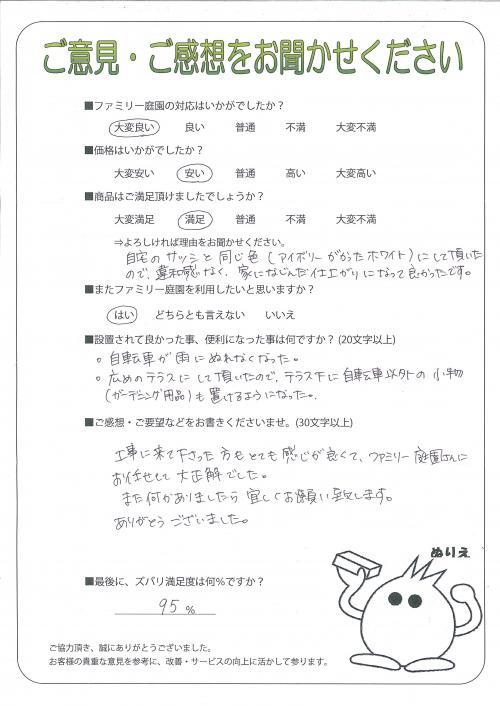 ご意見・ご感想をお聞かせください
■ファミリー庭園の対応はいかがでしたか？
大変良い 良い 普通 不満 大変不満
■価格はいかがでしたか？
大変安い 安い 普通 高い 大変高い
■商品はご満足頂けましたでしょうか？
大変満足 満足 普通 不満 大変不満
⇒よろしければ理由をお聞かせください。
自宅のサッシと同じ色（アイボリーがかったホワイト）にして頂いた
ので、違和感なく、家になじんだ仕上がりになって良かったです。
■またファミリー庭園を利用したいと思いますか？
はい どちらとも言えない いいえ
■設置されて良かった事、便利になった事は何ですか？(20文字以上)
○ 自転車が雨にぬれなくなった。
○ 広めのテラスにして頂いたので、テラス下に自転車以外の小物
（ガーデニング用品）も置けるようになった。
■ご感想・ご要望などをお書きくださいませ。(30文字以上)
工事に来て下さった方もとても感じが良くて、ファミリー庭園さんに
お任せして大正解でした。
また何かありましたら宜しくお願い致します。
ありがとうございました。
ぬりえ
■最後に、ズバリ満足度は何％ですか？
95 %
ご協力頂き、誠にありがとうございました。
お客様の貴重な意見を参考に、改善・サービスの向上に活かして参ります。